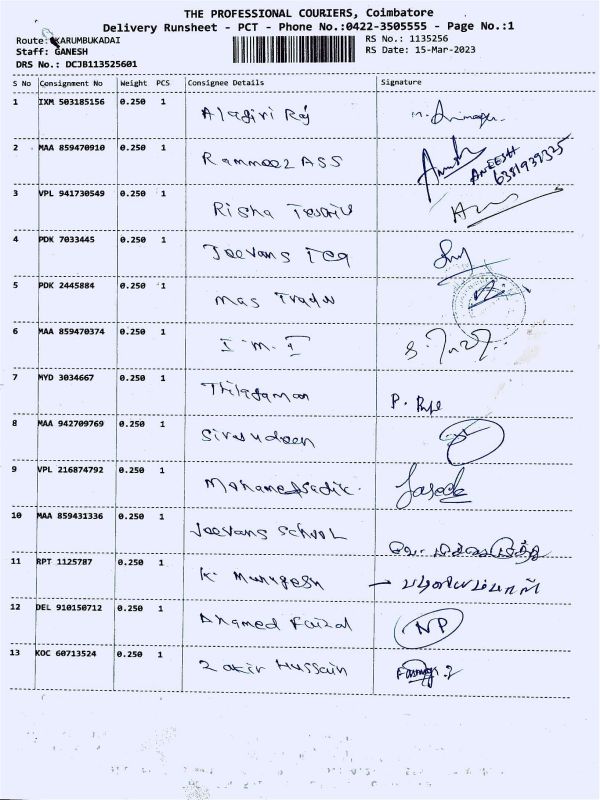 THE PROFESSIONAL COURIERS, Coimbatore
Delivery Runsheet - PCT - Phone No.:0422-3505555 - Page No.:1
Route: KARUMBUKADAI
RS No.: 1135256
Staff: GANESH
RS Date: 15-Mar-2023
DRS No.: DCJB113525601
S No Consignment No Weight PCS Consignee Details Signature
1 IXM 503185156 0.250 1 Alagiri Raj
2 MAA 859470910 0.250 1 Rammeez ASS ANEESH
6381939325
3 VPL 941730549 0.250 1 Risha
4 PDK 7033445 0.250 1 Jeevans Teq
5 PDK 2445884 0.250 1 mas Trader
6 MAA 859470374 0.250 1 I.M.I
7 MYD 3034667 0.250 1 P.
8 MAA 942709769 0.250 1 Sirajudeen
9 VPL 216874792 0.250 1 Mohamedsadik.
10 MAA 859431336 0.250 1 Jeevans School
11 RPT 1125787 0.250 1 K. Murugesh
12 DEL 910150712 0.250 1 Ahamed Faizal NP
13 KOC 60713524 0.250 1 Zakir Hussain